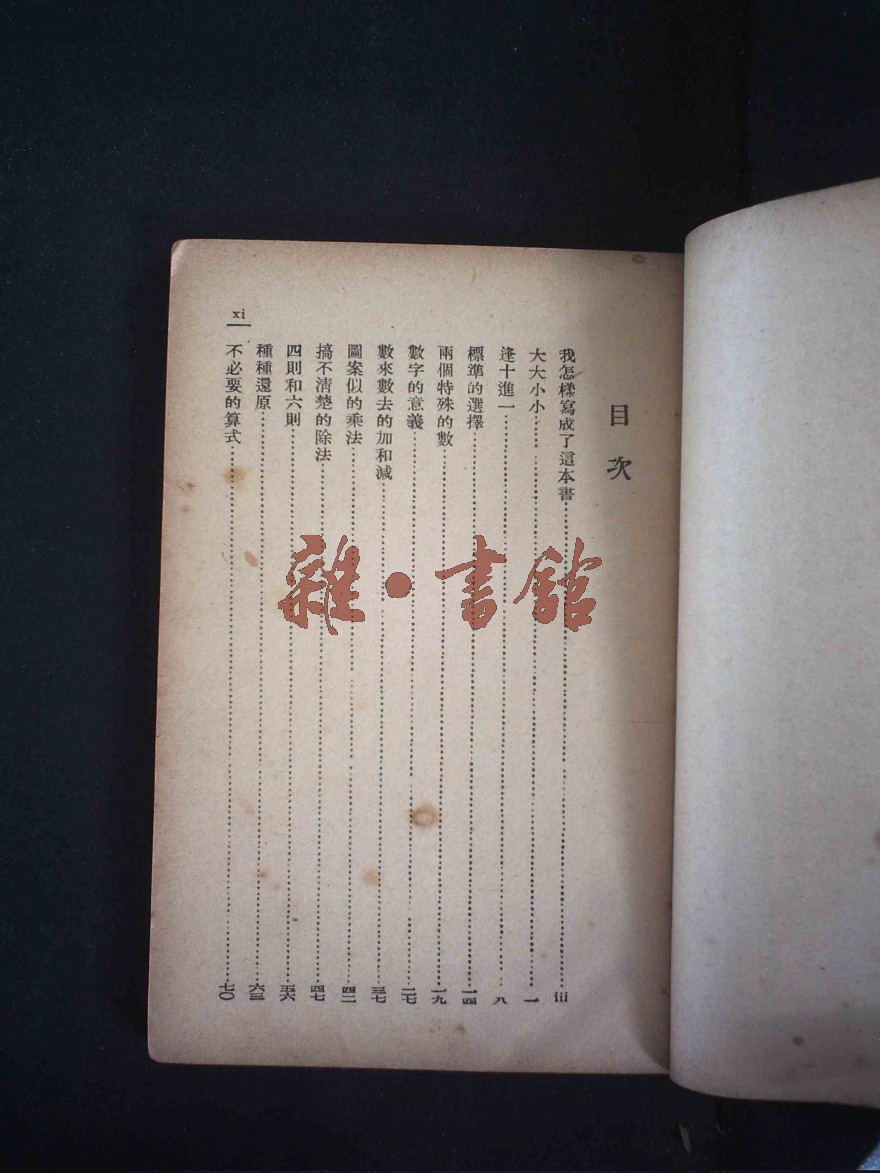 目次
我怎樣寫成了這本書……iii
大大小小……一
逢十進一……八
標準的選擇……一四
兩個特殊的數……一九
數字的意義……二七
數來數去的加和減……三七
圖案似的乘法……四二
搞不清楚的除法……四七
四則和六則……五六
種種還原……六三
不必要的算式……七〇
xi
雜·書館